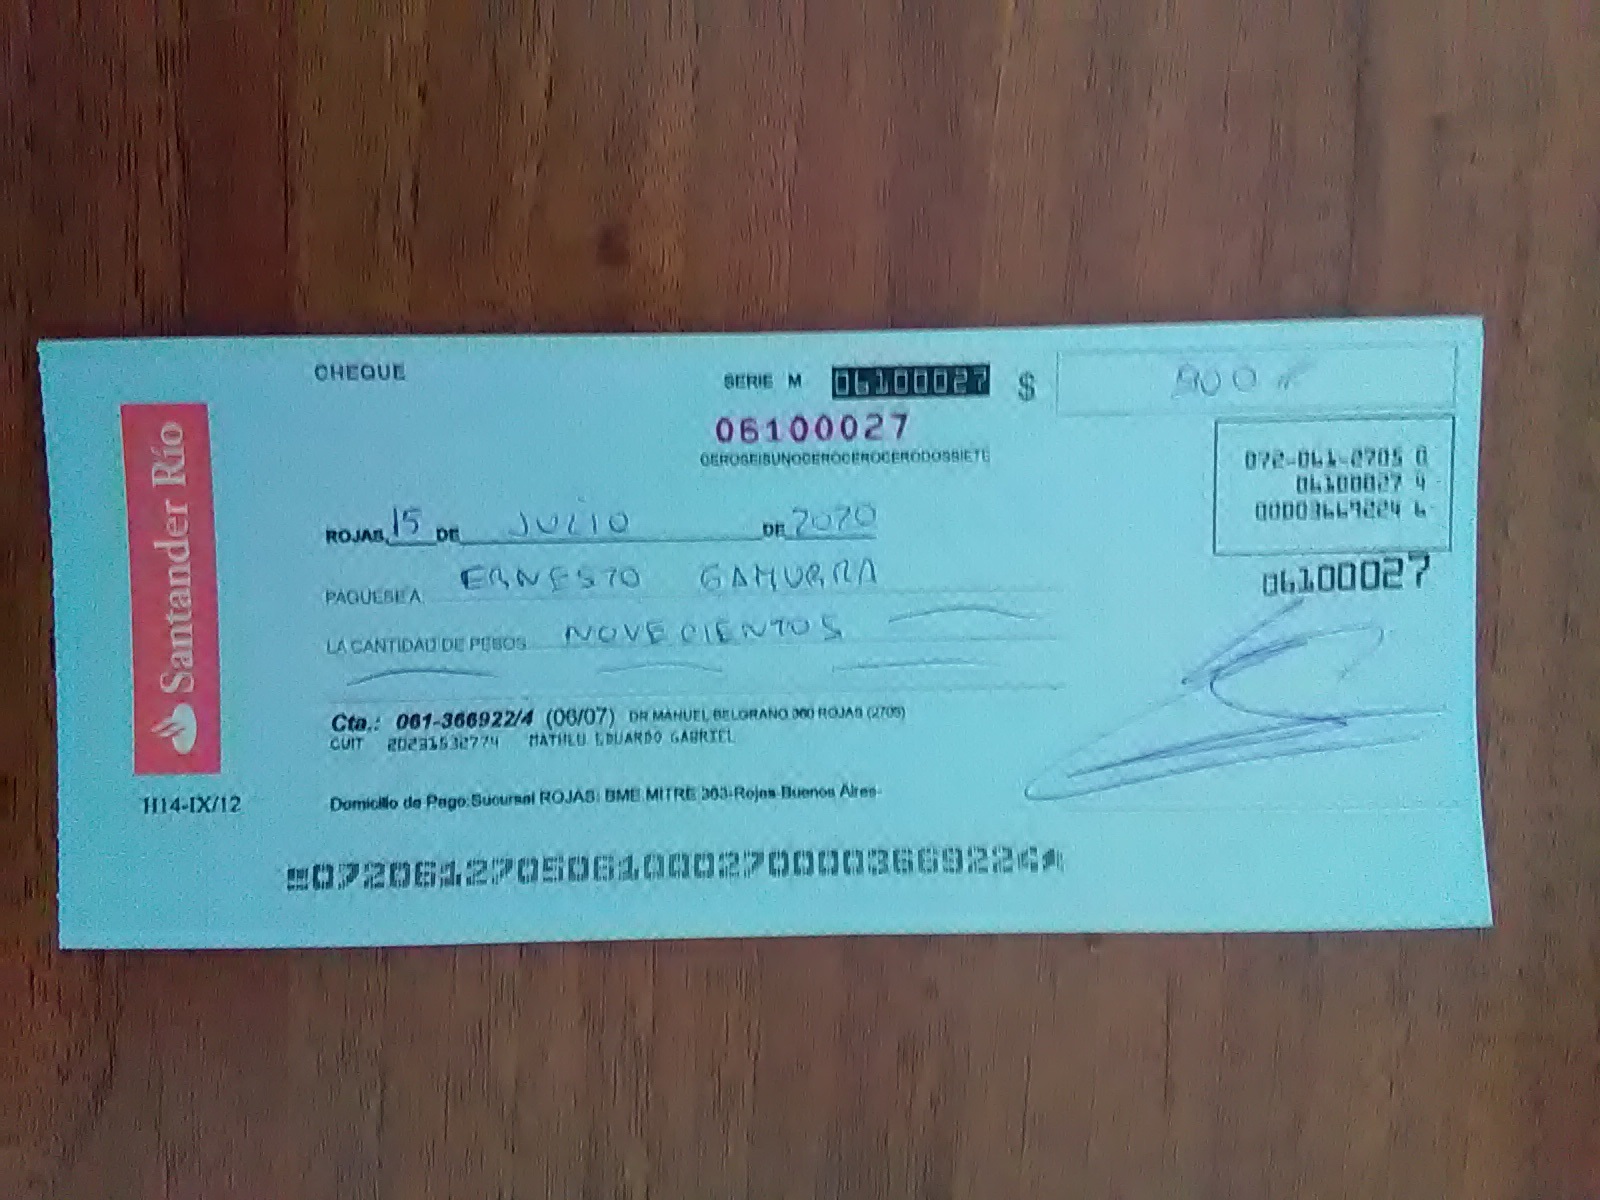 CHEQUE
SERIE M 06100027 $ 900
06100027
CEROSEISUNOCEROCEROCERODOSSIETE
072-061-2705 0
06100027 4
00003669224 6
06100027
Santander Río
ROJAS, 15 DE JULIO DE 2020
PAGUESE A ERNESTO GAMURRA
LA CANTIDAD DE PESOS NOVECIENTOS
Cta.: 061-366922/4 (06/07) DR MANUEL BELGRANO 360 ROJAS (2705)
CUIT 20231532774 MATHEU EDUARDO GABRIEL
H14-IX/12
Domicilio de Pago:Sucursal ROJAS: BME MITRE 363-Rojas-Buenos Aires-
07206127050610002700003669224